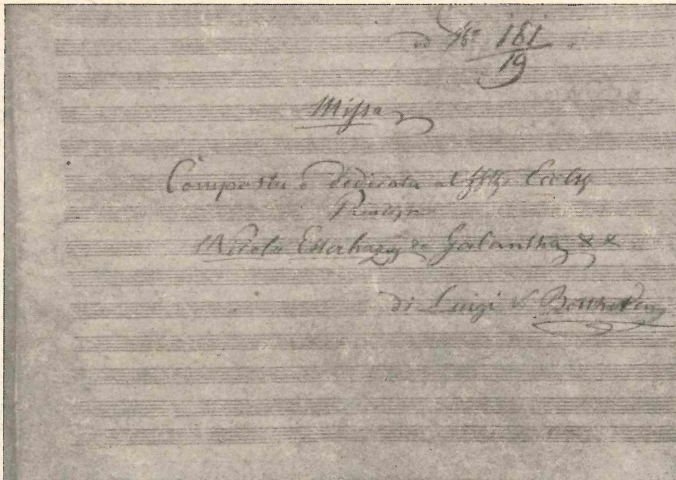 ad No 161
19
Missa
Composta e dedicata al
Principe
Nicola Esterhazy de Galantha
di Luigi v Beethoven